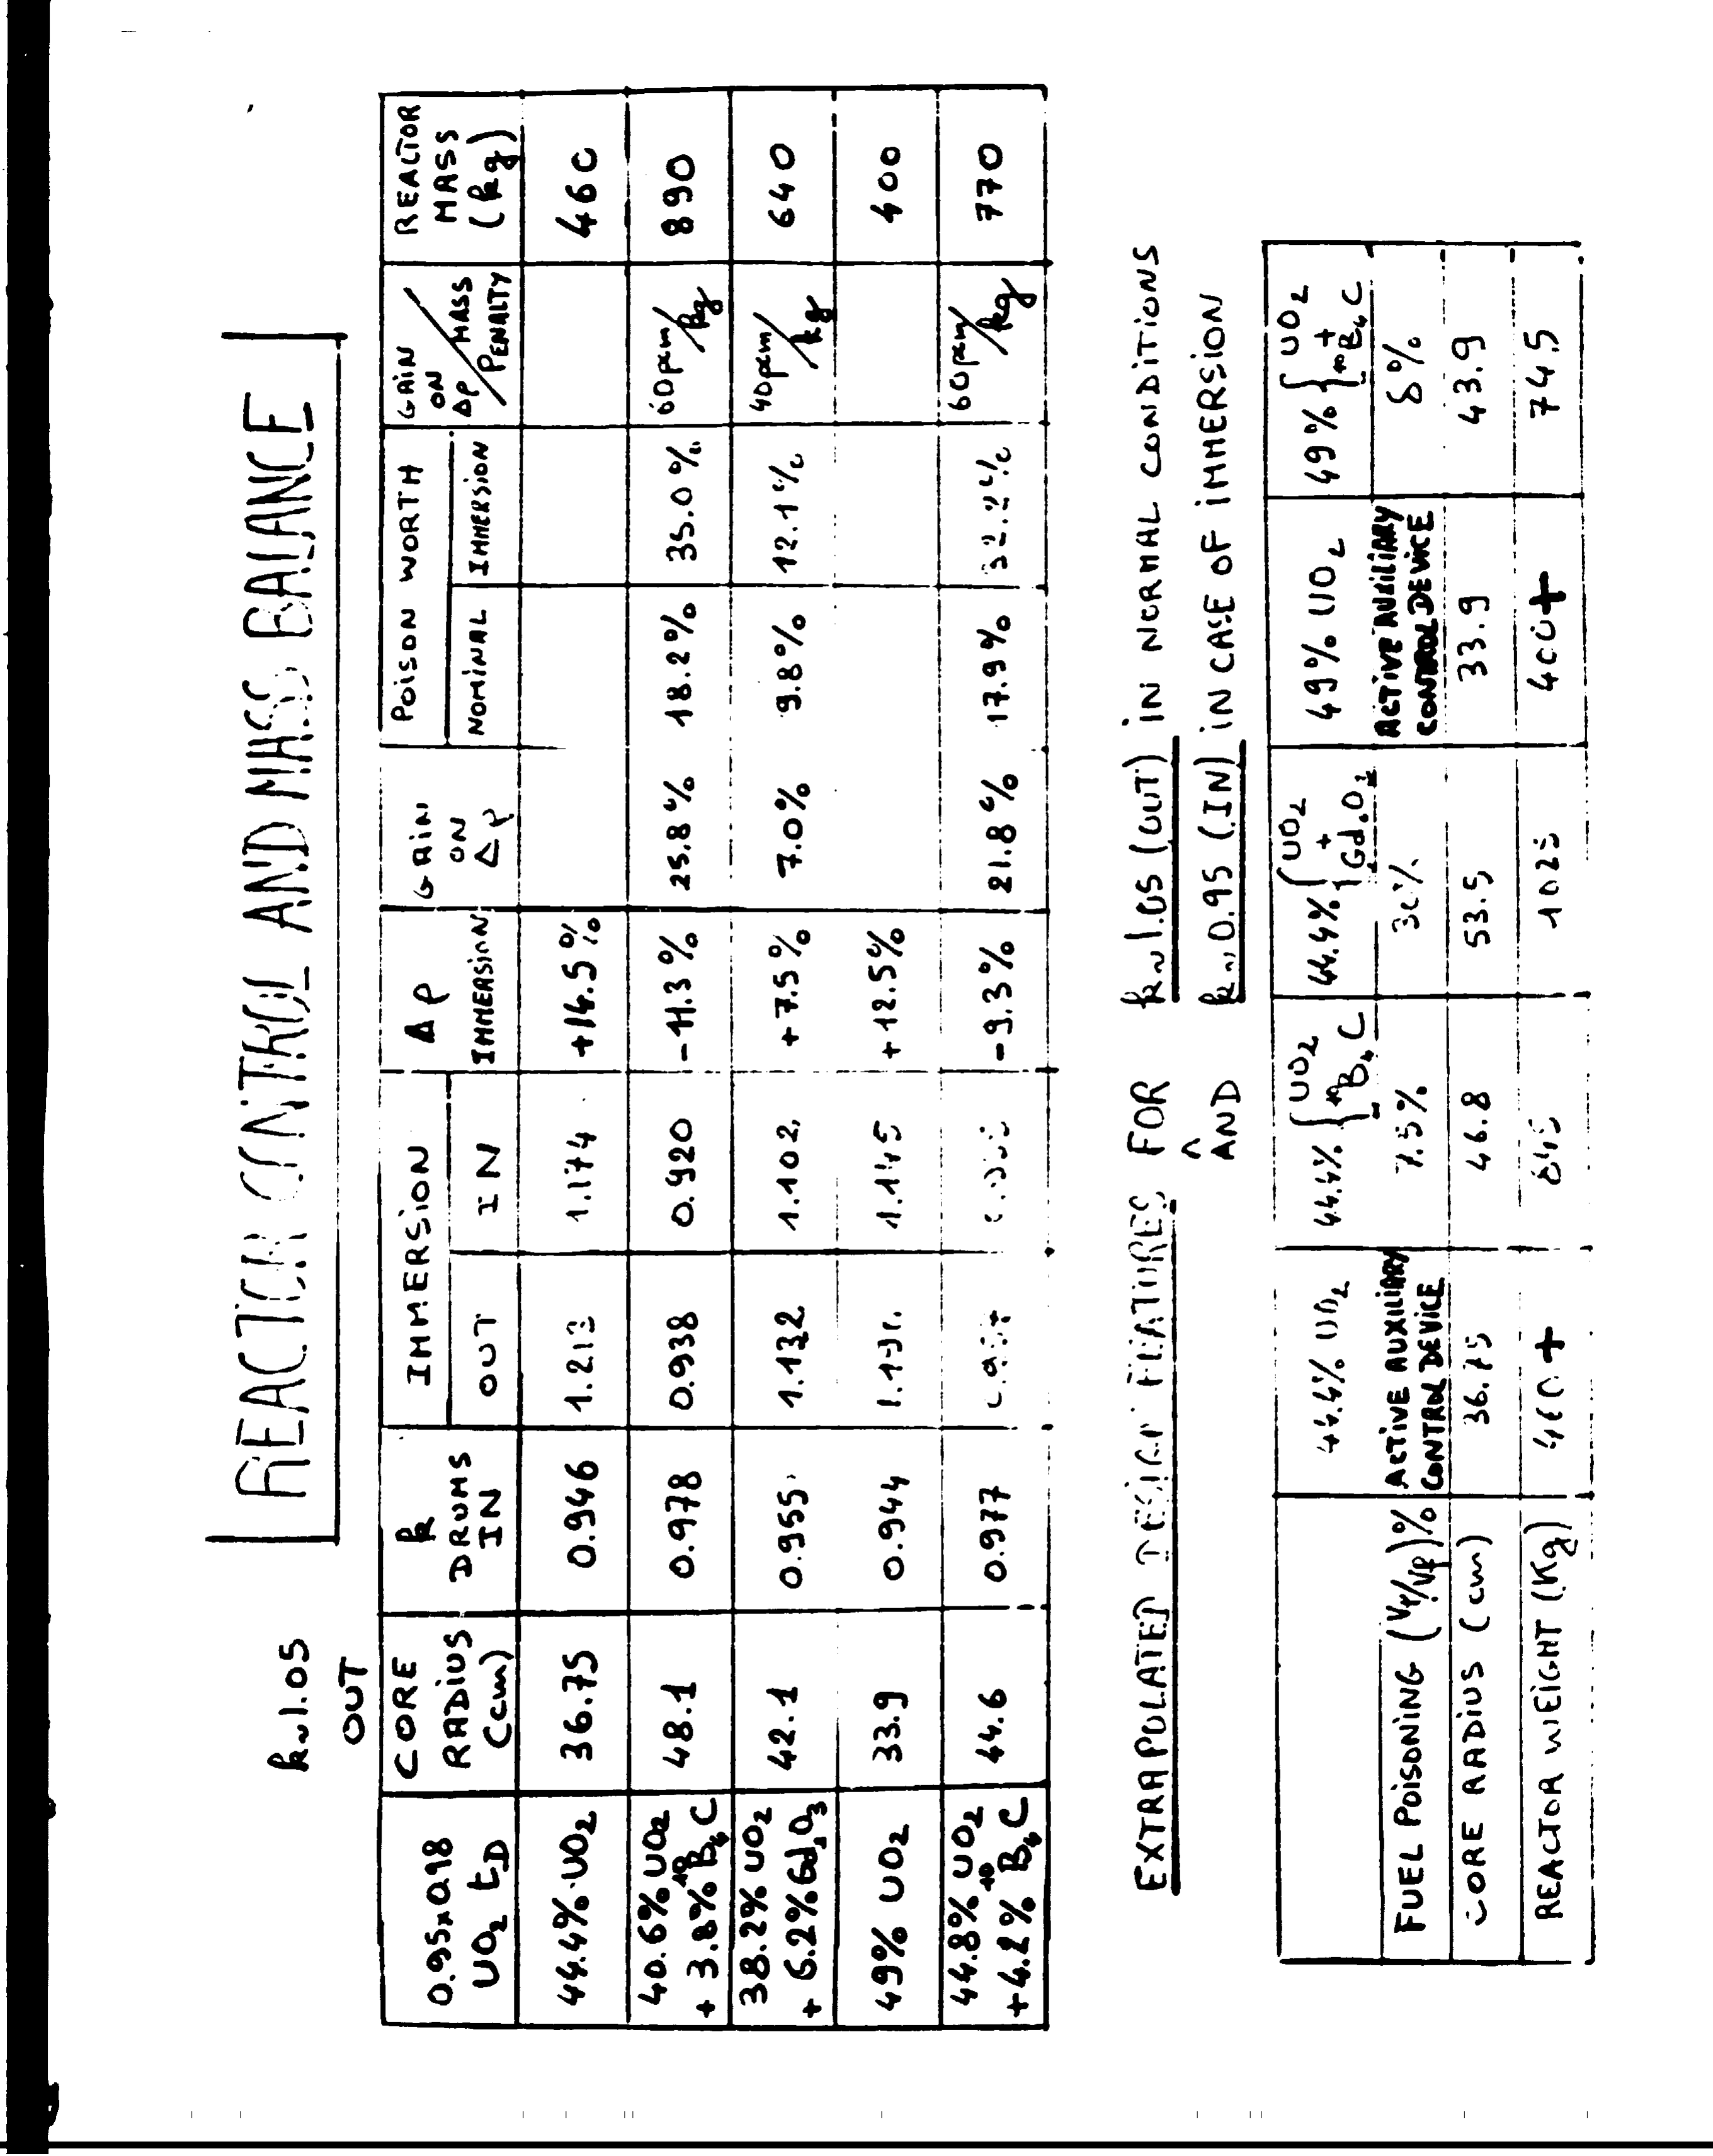 REACTOR CONTROL AND MASS BALANCE
k~1.05
OUT
0.95x0.98 UO2 tD | CORE RADIUS (cm) | k DRUMS IN | IMMERSION OUT | IMMERSION IN | Δρ IMMERSION | GAIN ON Δρ | POISON WORTH NOMINAL | POISON WORTH IMMERSION | GAIN ON Δρ / MASS PENALTY | REACTOR MASS (kg)
44.4% UO2 | 36.75 | 0.946 | 1.213 | 1.174 | +14.5% | | | | | 460
40.6% UO2 + 3.8% 10B4C | 48.1 | 0.978 | 0.938 | 0.920 | -11.3% | 25.8% | 18.2% | 35.0% | 60pcm/kg | 890
38.2% UO2 + 6.2% Gd2O3 | 42.1 | 0.955 | 1.132 | 1.102 | +7.5% | 7.0% | 9.8% | 12.1% | 40pcm/kg | 640
49% UO2 | 33.9 | 0.944 | | 1.145 | +12.5% | | | | | 400
44.8% UO2 + 4.2% 10B4C | 44.6 | 0.977 | | | -9.3% | 21.8% | 17.9% | 32.2% | 60pcm/kg | 770
EXTRAPOLATED DESIGN FEATURES FOR k~1.05 (OUT) IN NORMAL CONDITIONS
^ AND k~0.95 (IN) IN CASE OF IMMERSION
44.4% UO2 | 44.4% { UO2 + 10B4C | 44.4% { UO2 + Gd2O3 | 49% UO2 | 49% { UO2 + 10B4C
FUEL POISONING (Vp/Vf)% | ACTIVE AUXILIARY CONTROL DEVICE | 7.5% | 30% | ACTIVE AUXILIARY CONTROL DEVICE | 8%
CORE RADIUS (cm) | 36.75 | 46.8 | 53.5 | 33.9 | 43.9
REACTOR WEIGHT (Kg) | 460+ | 845 | 1025 | 400+ | 745